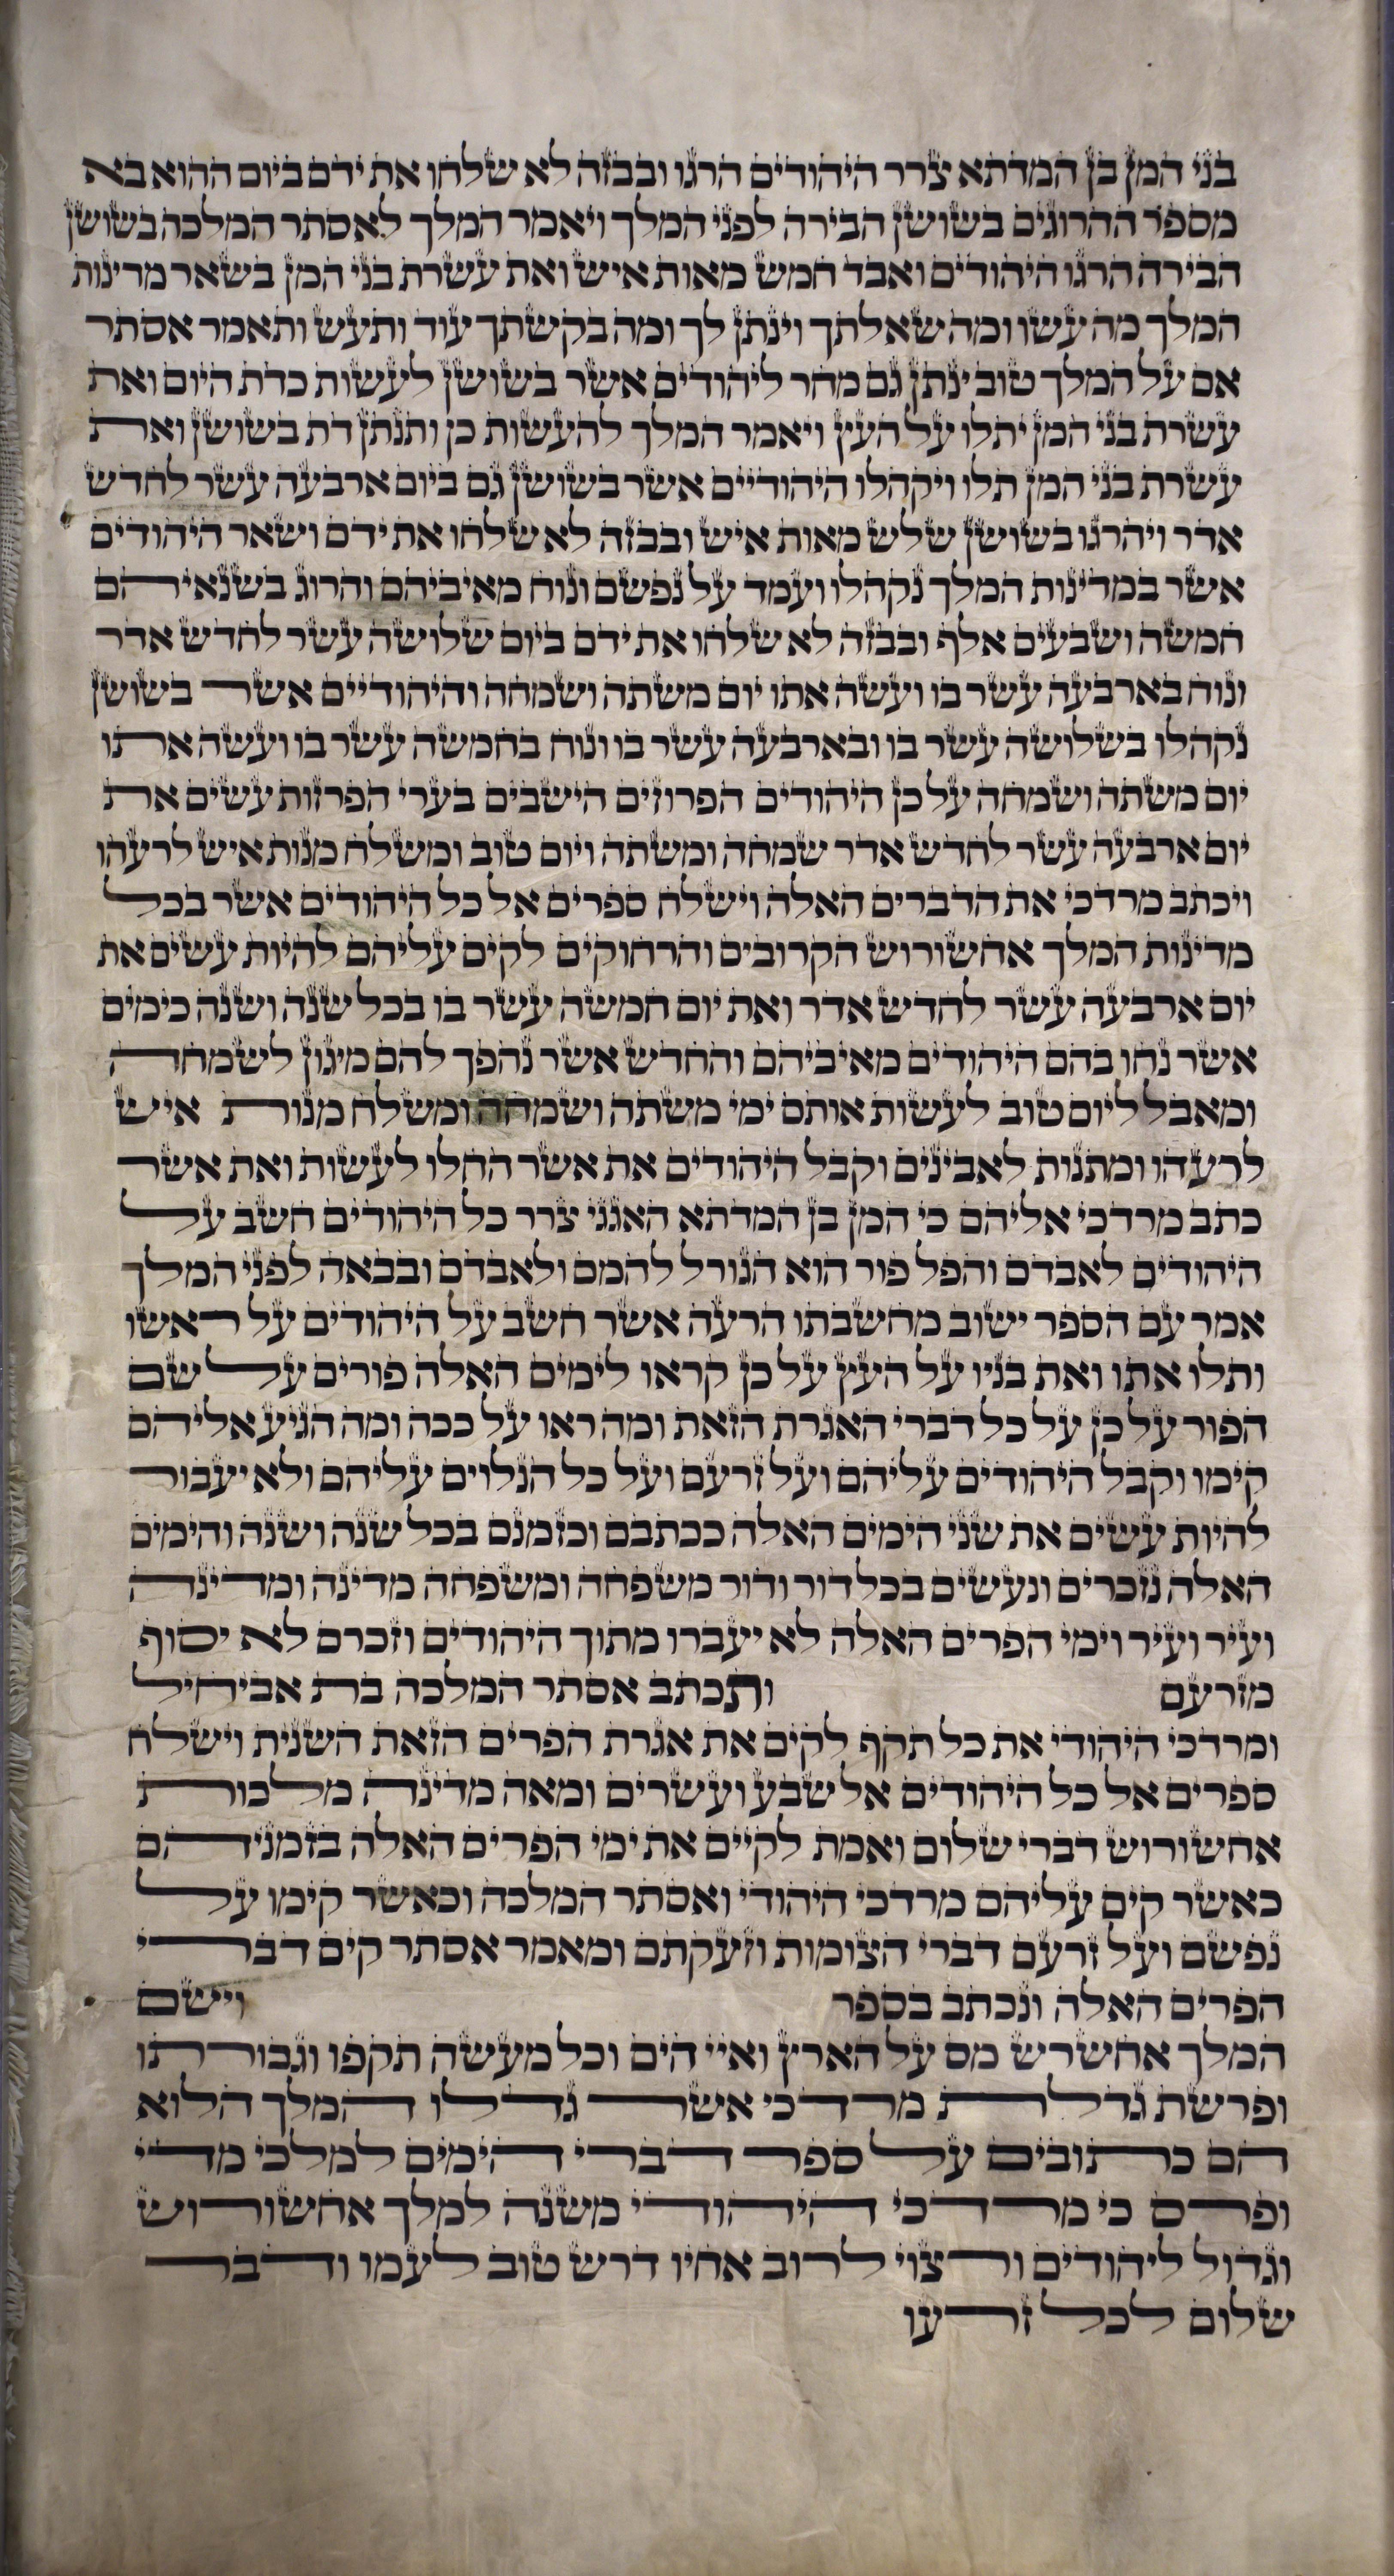 בני המן בן המדתא צרר היהודים הרגו ובבזה לא שלחו את ידם ביום ההוא בא
מספר ההרוגים בשושן הבירה לפני המלך ויאמר המלך לאסתר המלכה בשושן
הבירה הרגו היהודים ואבד חמש מאות איש ואת עשרת בני המן בשאר מדינות
המלך מה עשו ומה שאלתך וינתן לך ומה בקשתך עוד ותעש ותאמר אסתר
אם על המלך טוב ינתן גם מחר ליהודים אשר בשושן לעשות כדת היום ואת
עשרת בני המן יתלו על העץ ויאמר המלך להעשות כן ותנתן דת בשושן ואת
עשרת בני המן תלו ויקהלו היהודיים אשר בשושן גם ביום ארבעה עשר לחדש
אדר ויהרגו בשושן שלש מאות איש ובבזה לא שלחו את ידם ושאר היהודים
אשר במדינות המלך נקהלו ועמד על נפשם ונוח מאיביהם והרוג בשנאיהם
חמשה ושבעים אלף ובבזה לא שלחו את ידם ביום שלושה עשר לחדש אדר
ונוח בארבעה עשר בו ועשה אתו יום משתה ושמחה והיהודיים אשר בשושן
נקהלו בשלושה עשר בו ובארבעה עשר בו ונוח בחמשה עשר בו ועשה אתו
יום משתה ושמחה על כן היהודים הפרוזים הישבים בערי הפרזות עשים את
יום ארבעה עשר לחדש אדר שמחה ומשתה ויום טוב ומשלח מנות איש לרעהו
ויכתב מרדכי את הדברים האלה וישלח ספרים אל כל היהודים אשר בכל
מדינות המלך אחשורוש הקרובים והרחוקים לקים עליהם להיות עשים את
יום ארבעה עשר לחדש אדר ואת יום חמשה עשר בו בכל שנה ושנה כימים
אשר נחו בהם היהודים מאיביהם והחדש אשר נהפך להם מיגון לשמחה
ומאבל ליום טוב לעשות אותם ימי משתה ושמחה ומשלח מנות איש
לרעהו ומתנות לאבינים וקבל היהודים את אשר החלו לעשות ואת אשר
כתב מרדכי אליהם כי המן בן המדתא האגגי צרר כל היהודים חשב על
היהודים לאבדם והפל פור הוא הגורל להמם ולאבדם ובבאה לפני המלך
אמר עם הספר ישוב מחשבתו הרעה אשר חשב על היהודים על ראשו
ותלו אתו ואת בניו על העץ על כן קראו לימים האלה פורים על שם
הפור על כן על כל דברי האגרת הזאת ומה ראו על ככה ומה הגיע אליהם
קימו וקבל היהודים עליהם ועל זרעם ועל כל הנלוים עליהם ולא יעבור
להיות עשים את שני הימים האלה ככתבם וכזמנם בכל שנה ושנה והימים
האלה נזכרים ונעשים בכל דור ודור משפחה ומשפחה מדינה ומדינה
ועיר ועיר וימי הפרים האלה לא יעברו מתוך היהודים וזכרם לא יסוף
מזרעם ותכתב אסתר המלכה בת אביחיל
ומרדכי היהודי את כל תקף לקים את אגרת הפרים הזאת השנית וישלח
ספרים אל כל היהודים אל שבע ועשרים ומאה מדינה מלכות
אחשורוש דברי שלום ואמת לקיים את ימי הפרים האלה בזמניהם
כאשר קים עליהם מרדכי היהודי ואסתר המלכה וכאשר קימו על
נפשם ועל זרעם דברי הצומות וזעקתם ומאמר אסתר קים דברי
הפרים האלה ונכתב בספר וישם
המלך אחשרש מס על הארץ ואיי הים וכל מעשה תקפו וגבורתו
ופרשת גדלת מרדכי אשר גדלו המלך הלוא
הם כתובים על ספר דברי הימים למלכי מדי
ופרס כי מרדכי היהודי משנה למלך אחשורוש
וגדול ליהודים ורצוי לרוב אחיו דרש טוב לעמו ודבר
שלום לכל זרעו